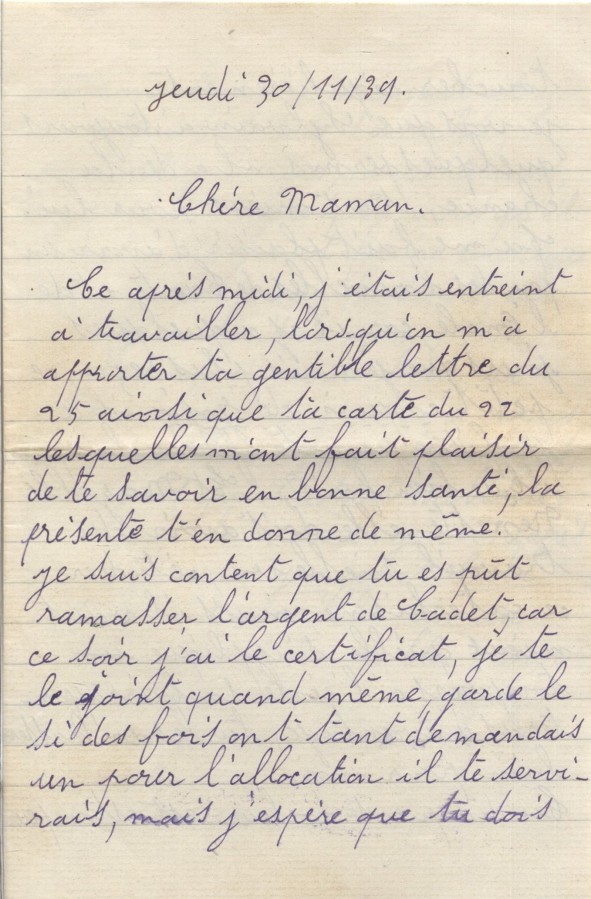 jeudi 30/11/39.
Chére Maman.
Ce aprés midi, j'étais entreint
à travailler, lorsqu'on m'a
apporter ta gentille lettre du
25 ainsi que ta carte du 22
lesquelles m'ont fait plaisir
de te savoir en bonne santé, la
présente t'en donne de même.
je suis content que tu es pût
ramasser l'argent de Cadet, car
ce soir j'ai le certificat, je te
le joint quand même, garde le
si des fois ont tant demandais
un pour l'allocation il te servi-
rais, mais j'espère que tu dois